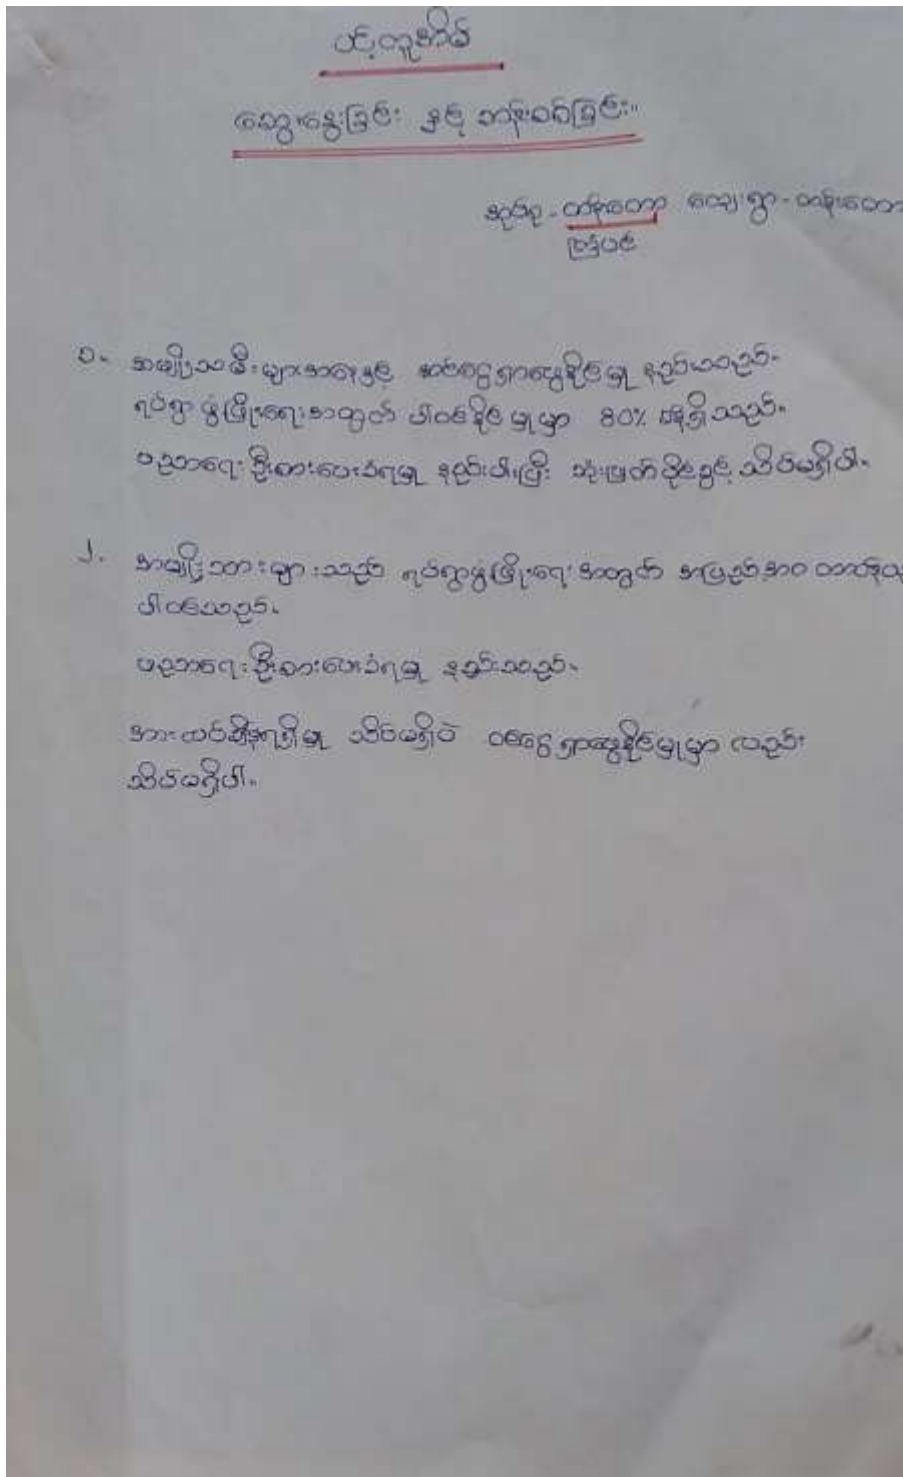 ပင့်ကူအိမ်
ဆွေးနွေးခြင်း နှင့် ဆန်းစစ်ခြင်း။
အုပ်စု - တန်းတော ကျေးရွာ - တန်းတော
ပြင်ပ
၁. အမျိုးသမီးများအနေနှင့် ဝင်ငွေရှာဖွေနိုင်မှု နည်းသည်။
ရပ်ရွာဖွံ့ဖြိုးရေးအတွက် ပါဝင်နိုင်မှုမှာ 80% ခန့်ရှိသည်။
ပညာရေးဦးစားပေးခံရမှု နည်းပါးပြီး ဆုံးဖြတ်နိုင်ခွင့် သိပ်မရှိပါ။
၂. အမျိုးသားများသည် ရပ်ရွာဖွံ့ဖြိုးရေးအတွက် အပြည့်အဝ
ပါဝင်သည်။
ပညာရေးဦးစားပေးခံရမှု နည်းသည်။
အားလပ်ချိန်ရရှိမှု သိပ်မရှိပဲ ဝင်ငွေရှာဖွေနိုင်မှုမှာ လည်း
သိပ်မရှိပါ။